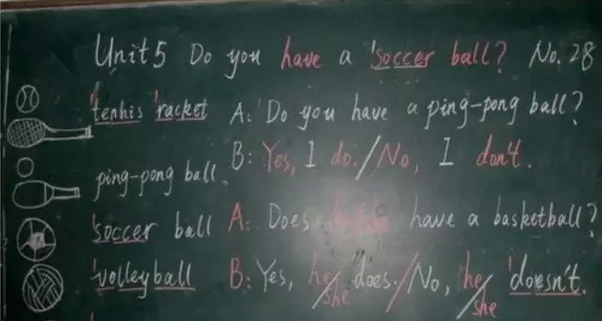 Unit 5 Do you have a 'soccer ball? No.28
'tennis 'racket A: Do you have a ping-pong ball?
B: Yes, I do. / No, I don't.
ping-pong ball
'soccer ball A: Does have a basketball?
'volleyball B: Yes, he/she does. / No, he/she 'doesn't.